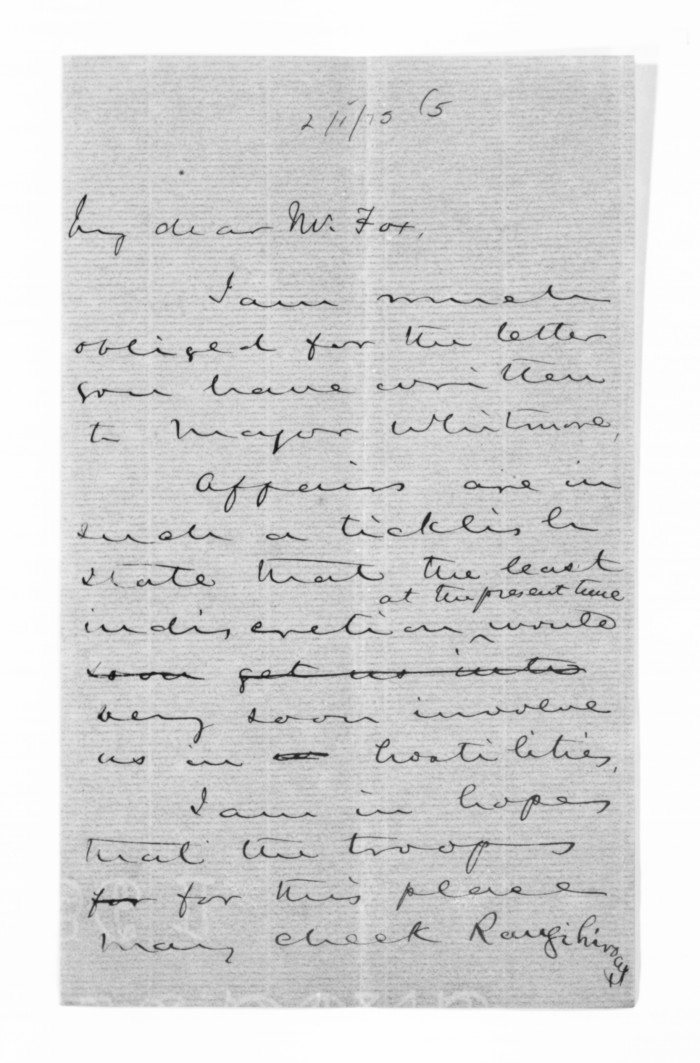 My dear Mr. Fox,
I am much
obliged for the letter
you have written
to Major Whitmore,
Affairs are in
such a ticklish
state that the least
at the present time
indiscretion ^ would
soon get us into
very soon involve
us in hostilities.
I am in hopes
that the troops
for for this place
may check Rangihiroa